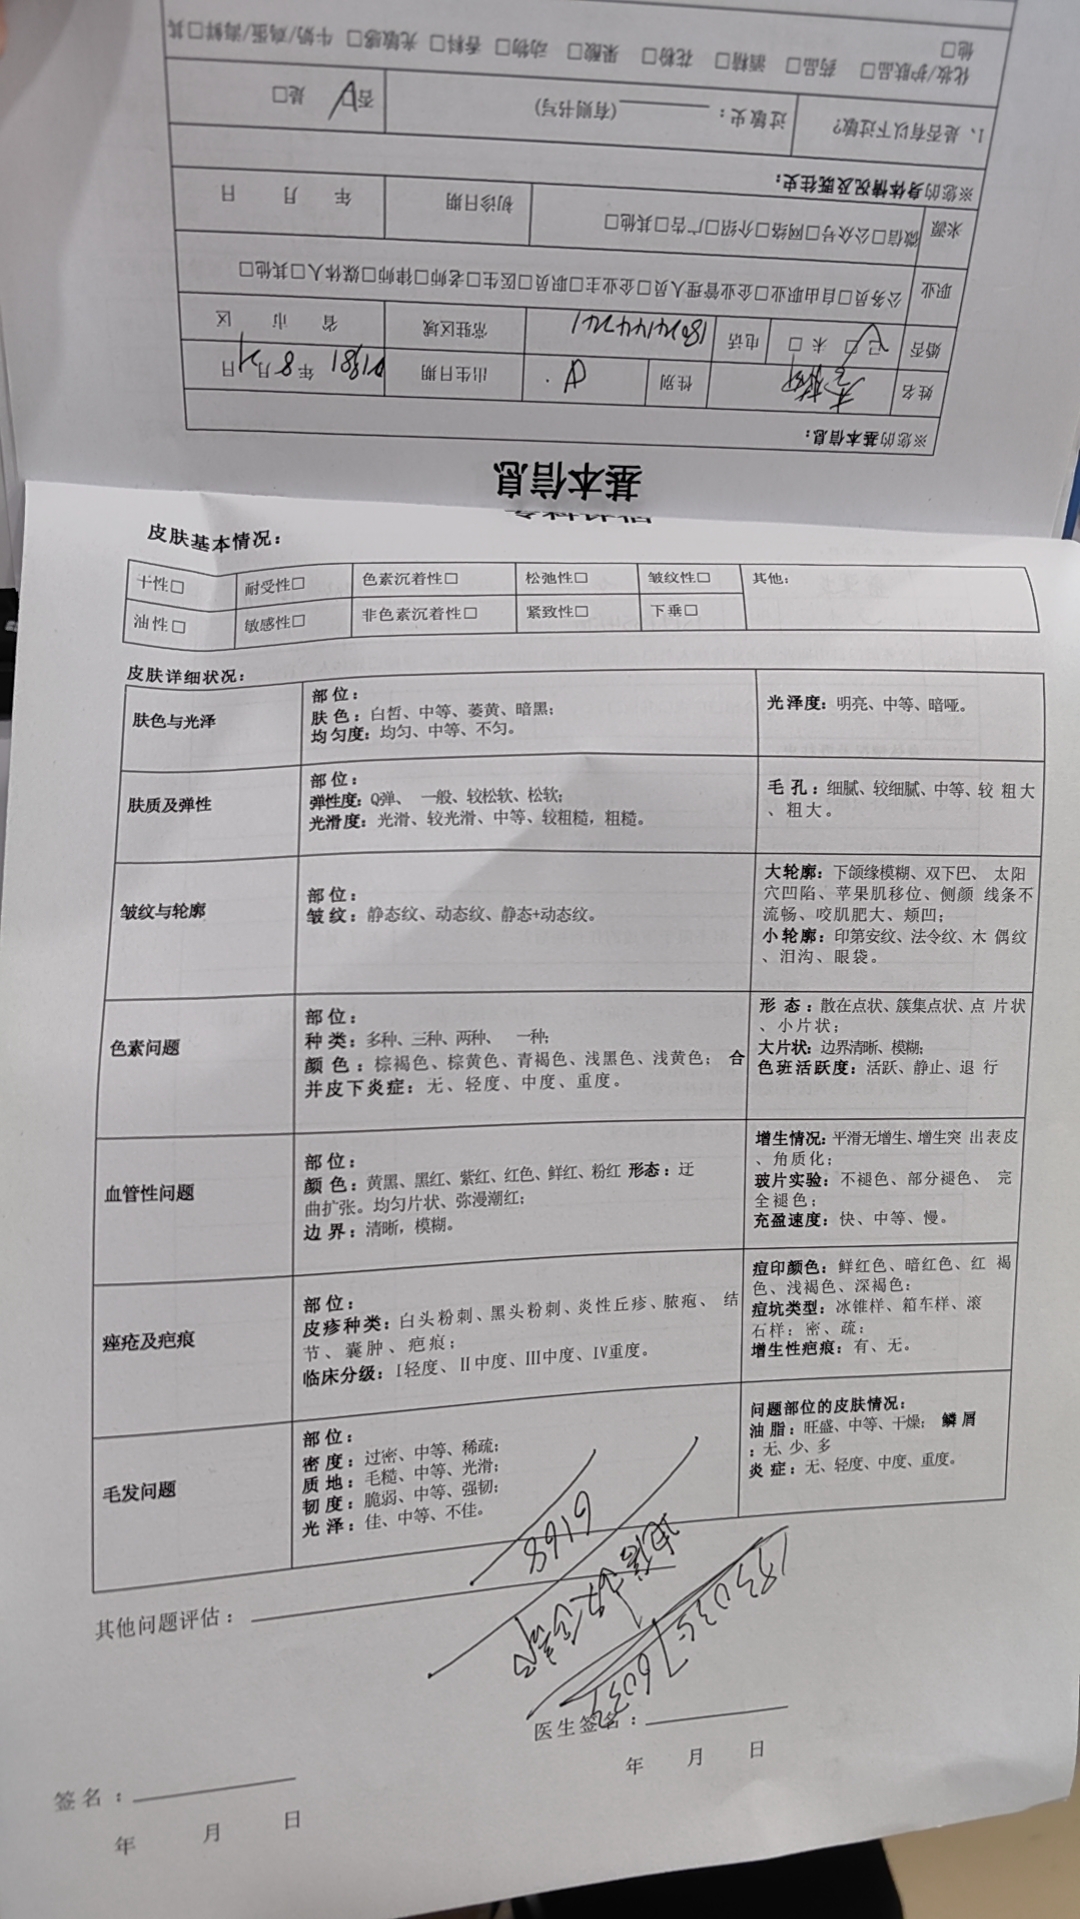 基本信息
※您的基本信息：
姓名 性别 出生日期 1981 年 8 月 21 日
婚否 已□ 未□ 电话 常驻区域 省 市 区
职业 公务员□自由职业□企业管理人员□企业主□职员□医生□老师□律师□媒体人□其他□
来源 微信□公众号□网络□介绍□广告□其他□ 初诊日期 年 月 日
※您的身体情况及既往史：
1、是否有以下过敏? 过敏史：（有则书写） 否□ 是□
化妆/护肤品□ 药品□ 酒精□ 花粉□ 果酸□ 动物□ 香料□ 光敏感□ 牛奶/鸡蛋/海鲜□其
他□
皮肤基本情况：
干性□ 耐受性□ 色素沉着性□ 松弛性□ 皱纹性□ 其他：
油性□ 敏感性□ 非色素沉着性□ 紧致性□ 下垂□
皮肤详细状况：
肤色与光泽
部位：
肤色：白皙、中等、萎黄、暗黑；
均匀度：均匀、中等、不匀。
光泽度：明亮、中等、暗哑。
肤质及弹性
部位：
弹性度：Q弹、 一般、较松软、松软；
光滑度：光滑、较光滑、中等、较粗糙，粗糙。
毛孔：细腻、较细腻、中等、较 粗大
、粗大。
皱纹与轮廓
部位：
皱纹：静态纹、动态纹、静态+动态纹。
大轮廓：下颌缘模糊、双下巴、 太阳
穴凹陷、苹果肌移位、侧颜 线条不
流畅、咬肌肥大、颊凹；
小轮廓：印第安纹、法令纹、木 偶纹
、泪沟、眼袋。
色素问题
部位：
种类：多种、三种、两种、 一种；
颜色：棕褐色、棕黄色、青褐色、浅黑色、浅黄色； 合
并皮下炎症：无、轻度、中度、重度。
形态：散在点状、簇集点状、点 片状
、小片状；
大片状：边界清晰、模糊；
色班活跃度：活跃、静止、退 行
血管性问题
部位：
颜色：黄黑、黑红、紫红、红色、鲜红、粉红 形态：迂
曲扩张。均匀片状、弥漫潮红；
边界：清晰，模糊。
增生情况：平滑无增生、增生突 出表皮
、角质化；
玻片实验：不褪色、部分褪色、 完
全褪色；
充盈速度：快、中等、慢。
痤疮及疤痕
部位：
皮疹种类：白头粉刺、黑头粉刺、炎性丘疹、脓疱、 结
节、囊肿、疤痕；
临床分级：I轻度、II中度、III中度、IV重度。
痘印颜色：鲜红色、暗红色、红 褐
色、浅褐色、深褐色；
痘坑类型：冰锥样、箱车样、滚
石样；密、疏；
增生性疤痕：有、无。
毛发问题
部位：
密度：过密、中等、稀疏；
质地：毛糙、中等、光滑；
韧度：脆弱、中等、强韧；
光泽：佳、中等、不佳。
问题部位的皮肤情况：
油脂：旺盛、中等、干燥； 鳞屑
：无、少、多
炎症：无、轻度、中度、重度。
其他问题评估：
医生签名：
年 月 日
签名：
年 月 日